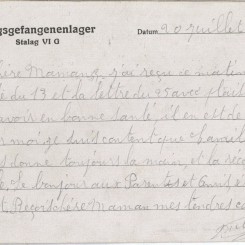 gsgefangenenlager Datum 20 juillet
Stalag VI G
ère Maman, j'ai reçu ce matin
du 13 et la lettre du 25 avec plaisir
avoir en bonne santé, il en est de
moi, je suis content que
donne toujours la main, et la
le bonjour aux Parents et amis et
Reçois chère Maman mes tendres